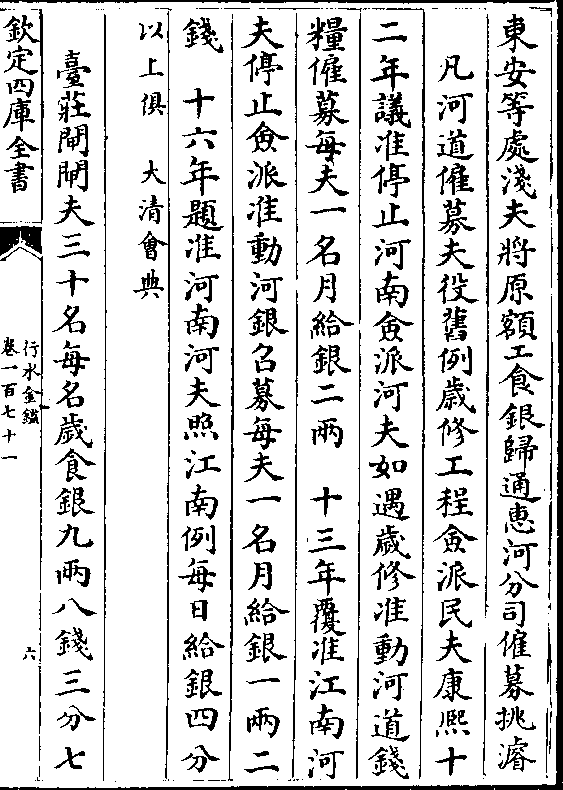 東安等處淺夫將原額工食銀歸通惠河分司僱募挑濬
凡河道僱募夫役舊例歲修工程僉派民夫康熙十
二年議准停止河南僉派河夫如遇歲修准動河道錢
糧僱募每夫一名月給銀二兩　十三年覆准江南河
夫停止僉派准動河銀召募每夫一名月給銀一兩二
錢　十六年題准河南河夫照江南例每日給銀四分
以上俱　大清會典
臺莊閘閘夫三十名每名歲食銀九兩八錢三分七
欽定四庫全書
行水金鑑
卷一百七十一
六